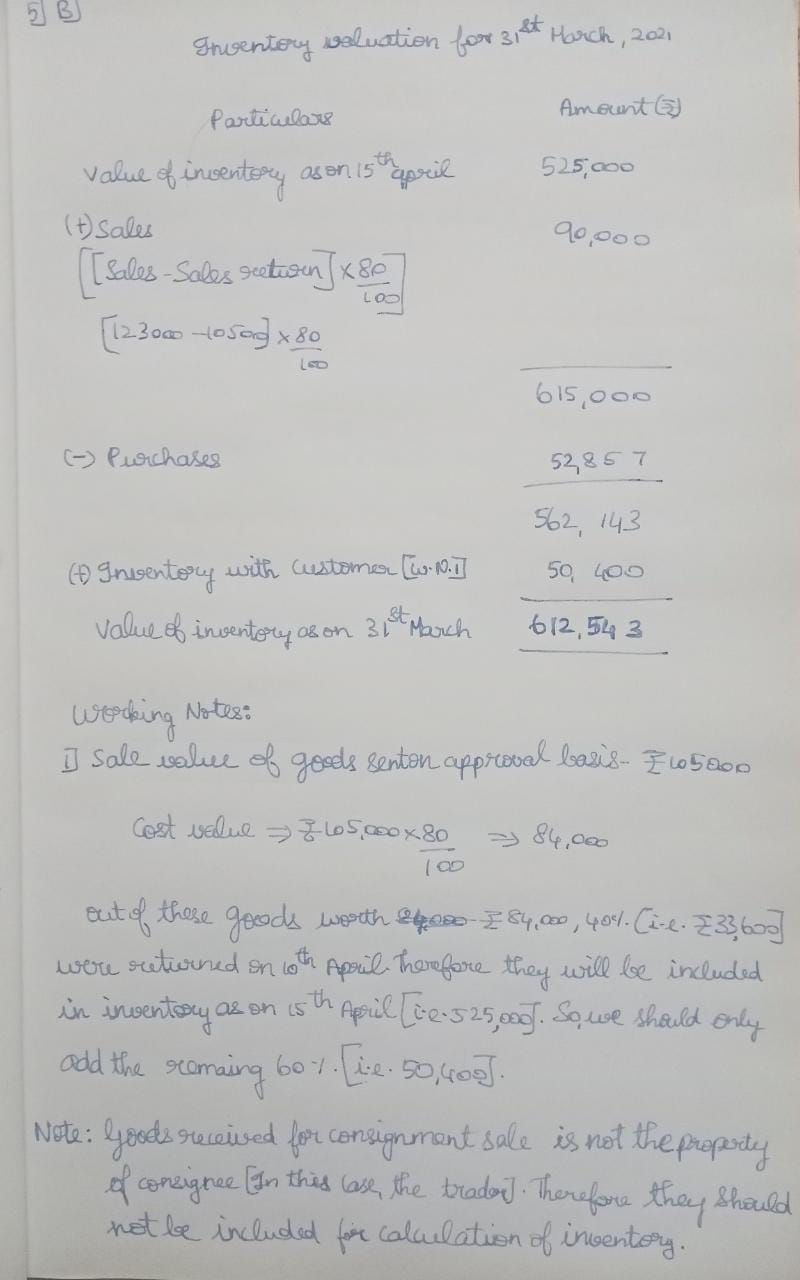 5] B]
Inventory valuation for 31st March, 2021
Particulars Amount (₹)
Value of inventory as on 15th april 525,000
(+) Sales 90,000
[[Sales - Sales return] × 80/100]
[123000 - 10500] × 80/100
615,000
(-) Purchases 52,857
562,143
(+) Inventory with Customer [W.N.1] 50,400
Value of inventory as on 31st March 612,543
Working Notes:
1] Sale value of goods sent on approval basis - ₹105000
Cost value ⇒ ₹105,000 × 80/100 ⇒ 84,000
out of these goods worth ₹84,000, 40%. [i.e. ₹33,600]
were returned on 10th April. Therefore they will be included
in inventory as on 15th April [i.e. 525,000]. So, we should only
add the remaing 60%. [i.e. 50,400].
Note: Goods received for consignment sale is not the property
of consignee [In this case, the trader]. Therefore they should
not be included for calculation of inventory.